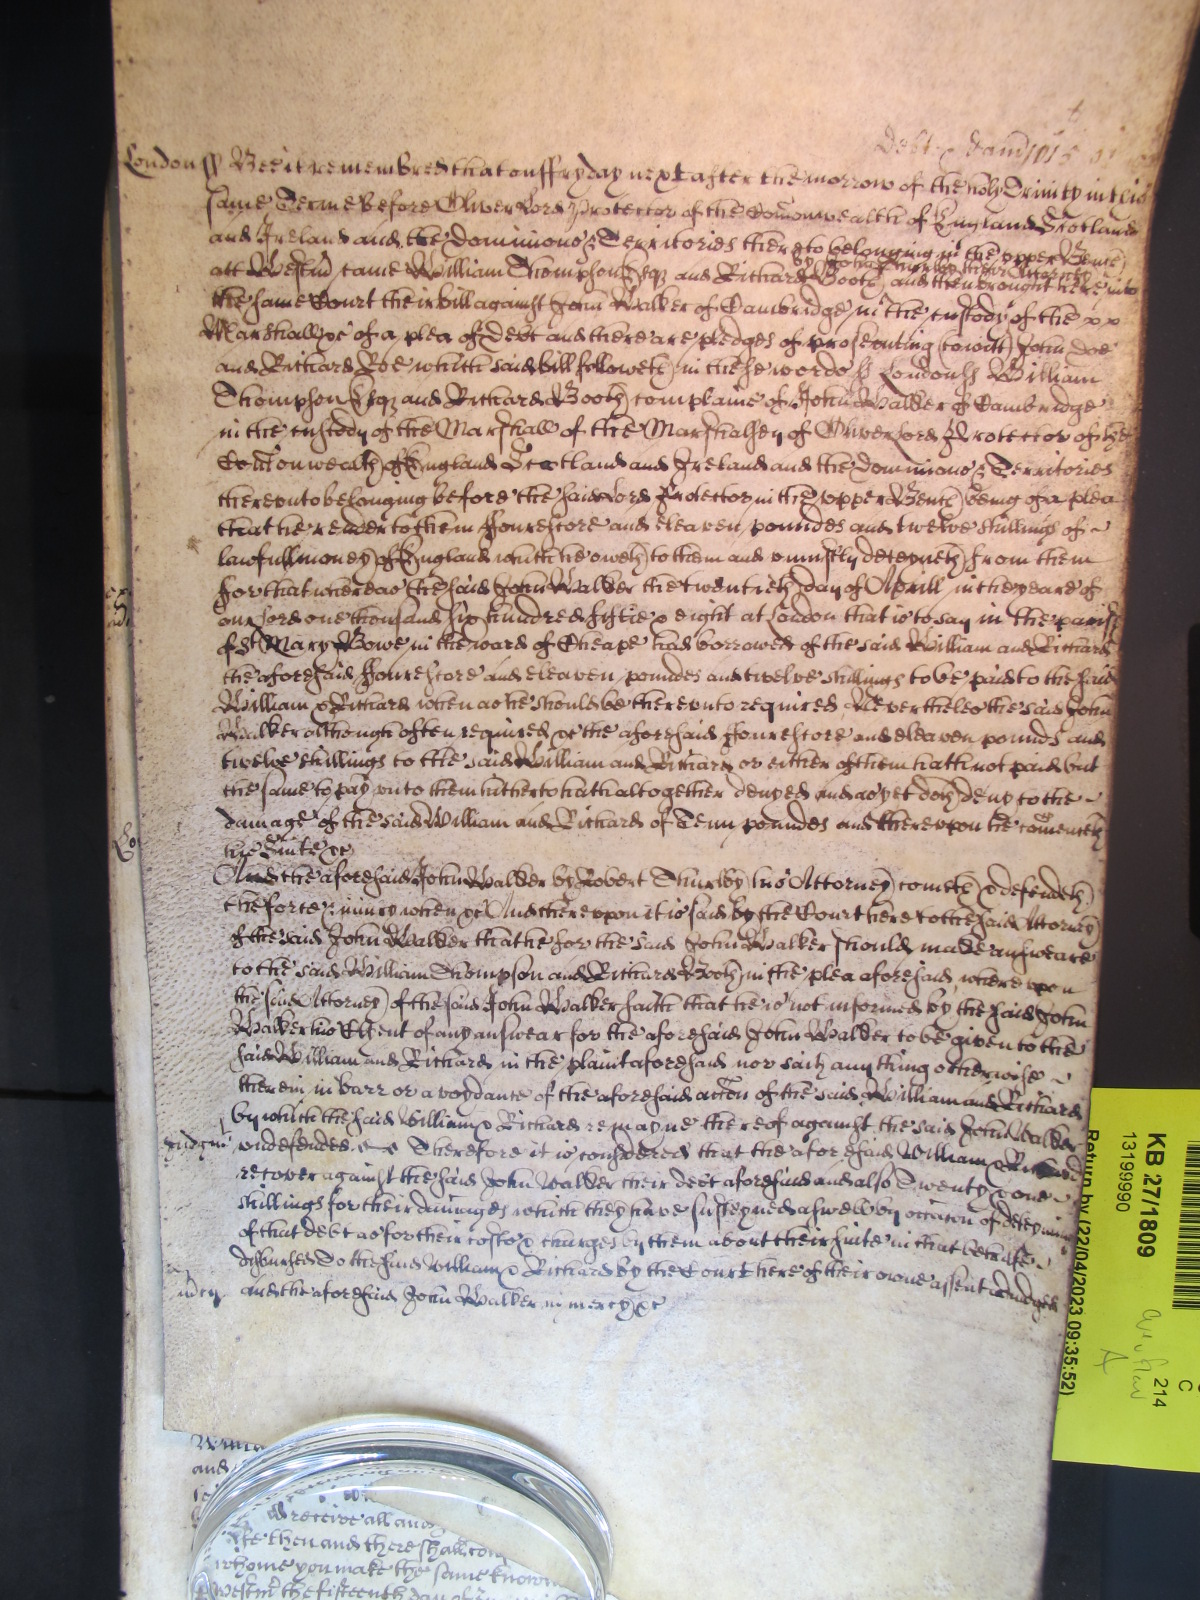 Debt & dam 101s
London ss Bee it remembred that on ffryday next after the morrow of the holy Trinity in this
same Terme before Oliver Lord Protector of the Comonwealth of England Scotland
and Ireland and the Dominions & Territories thereto belonging in the upper Bench
by John their Attorney
att Westm came William Thompson Esqz and Richard Booth and then brought here into
the same Court their bill against John Walker of Cambridge in the custody of the
Marshall &c of a plea of debt and there are pledges of prosecuting (to witt) John Doe
and Richard Roe which said bill followeth in these wordes ss London ss William
Thompson Esqz and Richard Booth complaine of John Walker of Cambridge
in the custody of the Marshall of the Marshalsey of Oliver Lord Protector of the
Comonwealth of England Scotland and Ireland and the Dominions & Territories
thereunto belonging before the said Lord Protector in the upper Bench being of a plea
that he render to them ffourescore and eleaven poundes and twelve shillings of
lawfull money of England which he oweth to them and uniustly deteyneth from them
for that whereas the said John Walker the twentieth day of Aprill in the yeare of
our Lord one thousand six hundred fiftie & eight at London that is to say in the parish
of St Mary Bowe in the ward of Cheape had borrowed of the said William and Richard
the aforesaid ffourescore and eleaven poundes and twelve shillings to be paid to the said
William & Richard when as he should be thereunto required Neverthelesse the said John
Walker although often required &c the aforesaid ffourescore and eleaven pounds and
twelve shillings to the said William and Richard or either of them hath not paid but
the same to pay unto them hitherto hath altogether denyed and as yet doth deny to the
damage of the said William and Richard of Tenn poundes and thereupon he comenceth
the Suite &c
And the aforesaid John Walker by Robert Thurlby his Attorney cometh & defendeth
the force & iniury when &c And thereupon it is said by the Court here to the said Attorney
of the said John Walker that he for the said John Walker should make answeare
to the said William Thompson and Richard Booth in the plea aforesaid whereupon
the said Attorney of the said John Walker saith that he is not informed by the said John
Walker his Clyent of any answear for the aforesaid John Walker to be given to the
said William and Richard in the plaint aforesaid nor saith any thing otherwise
therein in barr or avoydance of the aforesaid accon of the said William and Richard
by which the said William & Richard remayne thereof against the said John Walker
Judgmt undefended Therefore it is considered that the aforesaid William & Richard
recover against the said John Walker their debt aforesaid and also Twenty & one
shillings for their damages which they have susteyned aswell by occacon of deteyning
of that debt as for their costs & charges by them about their suite in that behalfe
disbursed To the said William & Richard by the Court here of their owne assent adiudged
and the aforesaid John Walker in mercy &c
and
receive all and
then and there shall
whome you make the same known
Westm the fifteenth day of
KB 27/1809
13199990
Return by (22/04/2023 09:35:52)
214
C
A